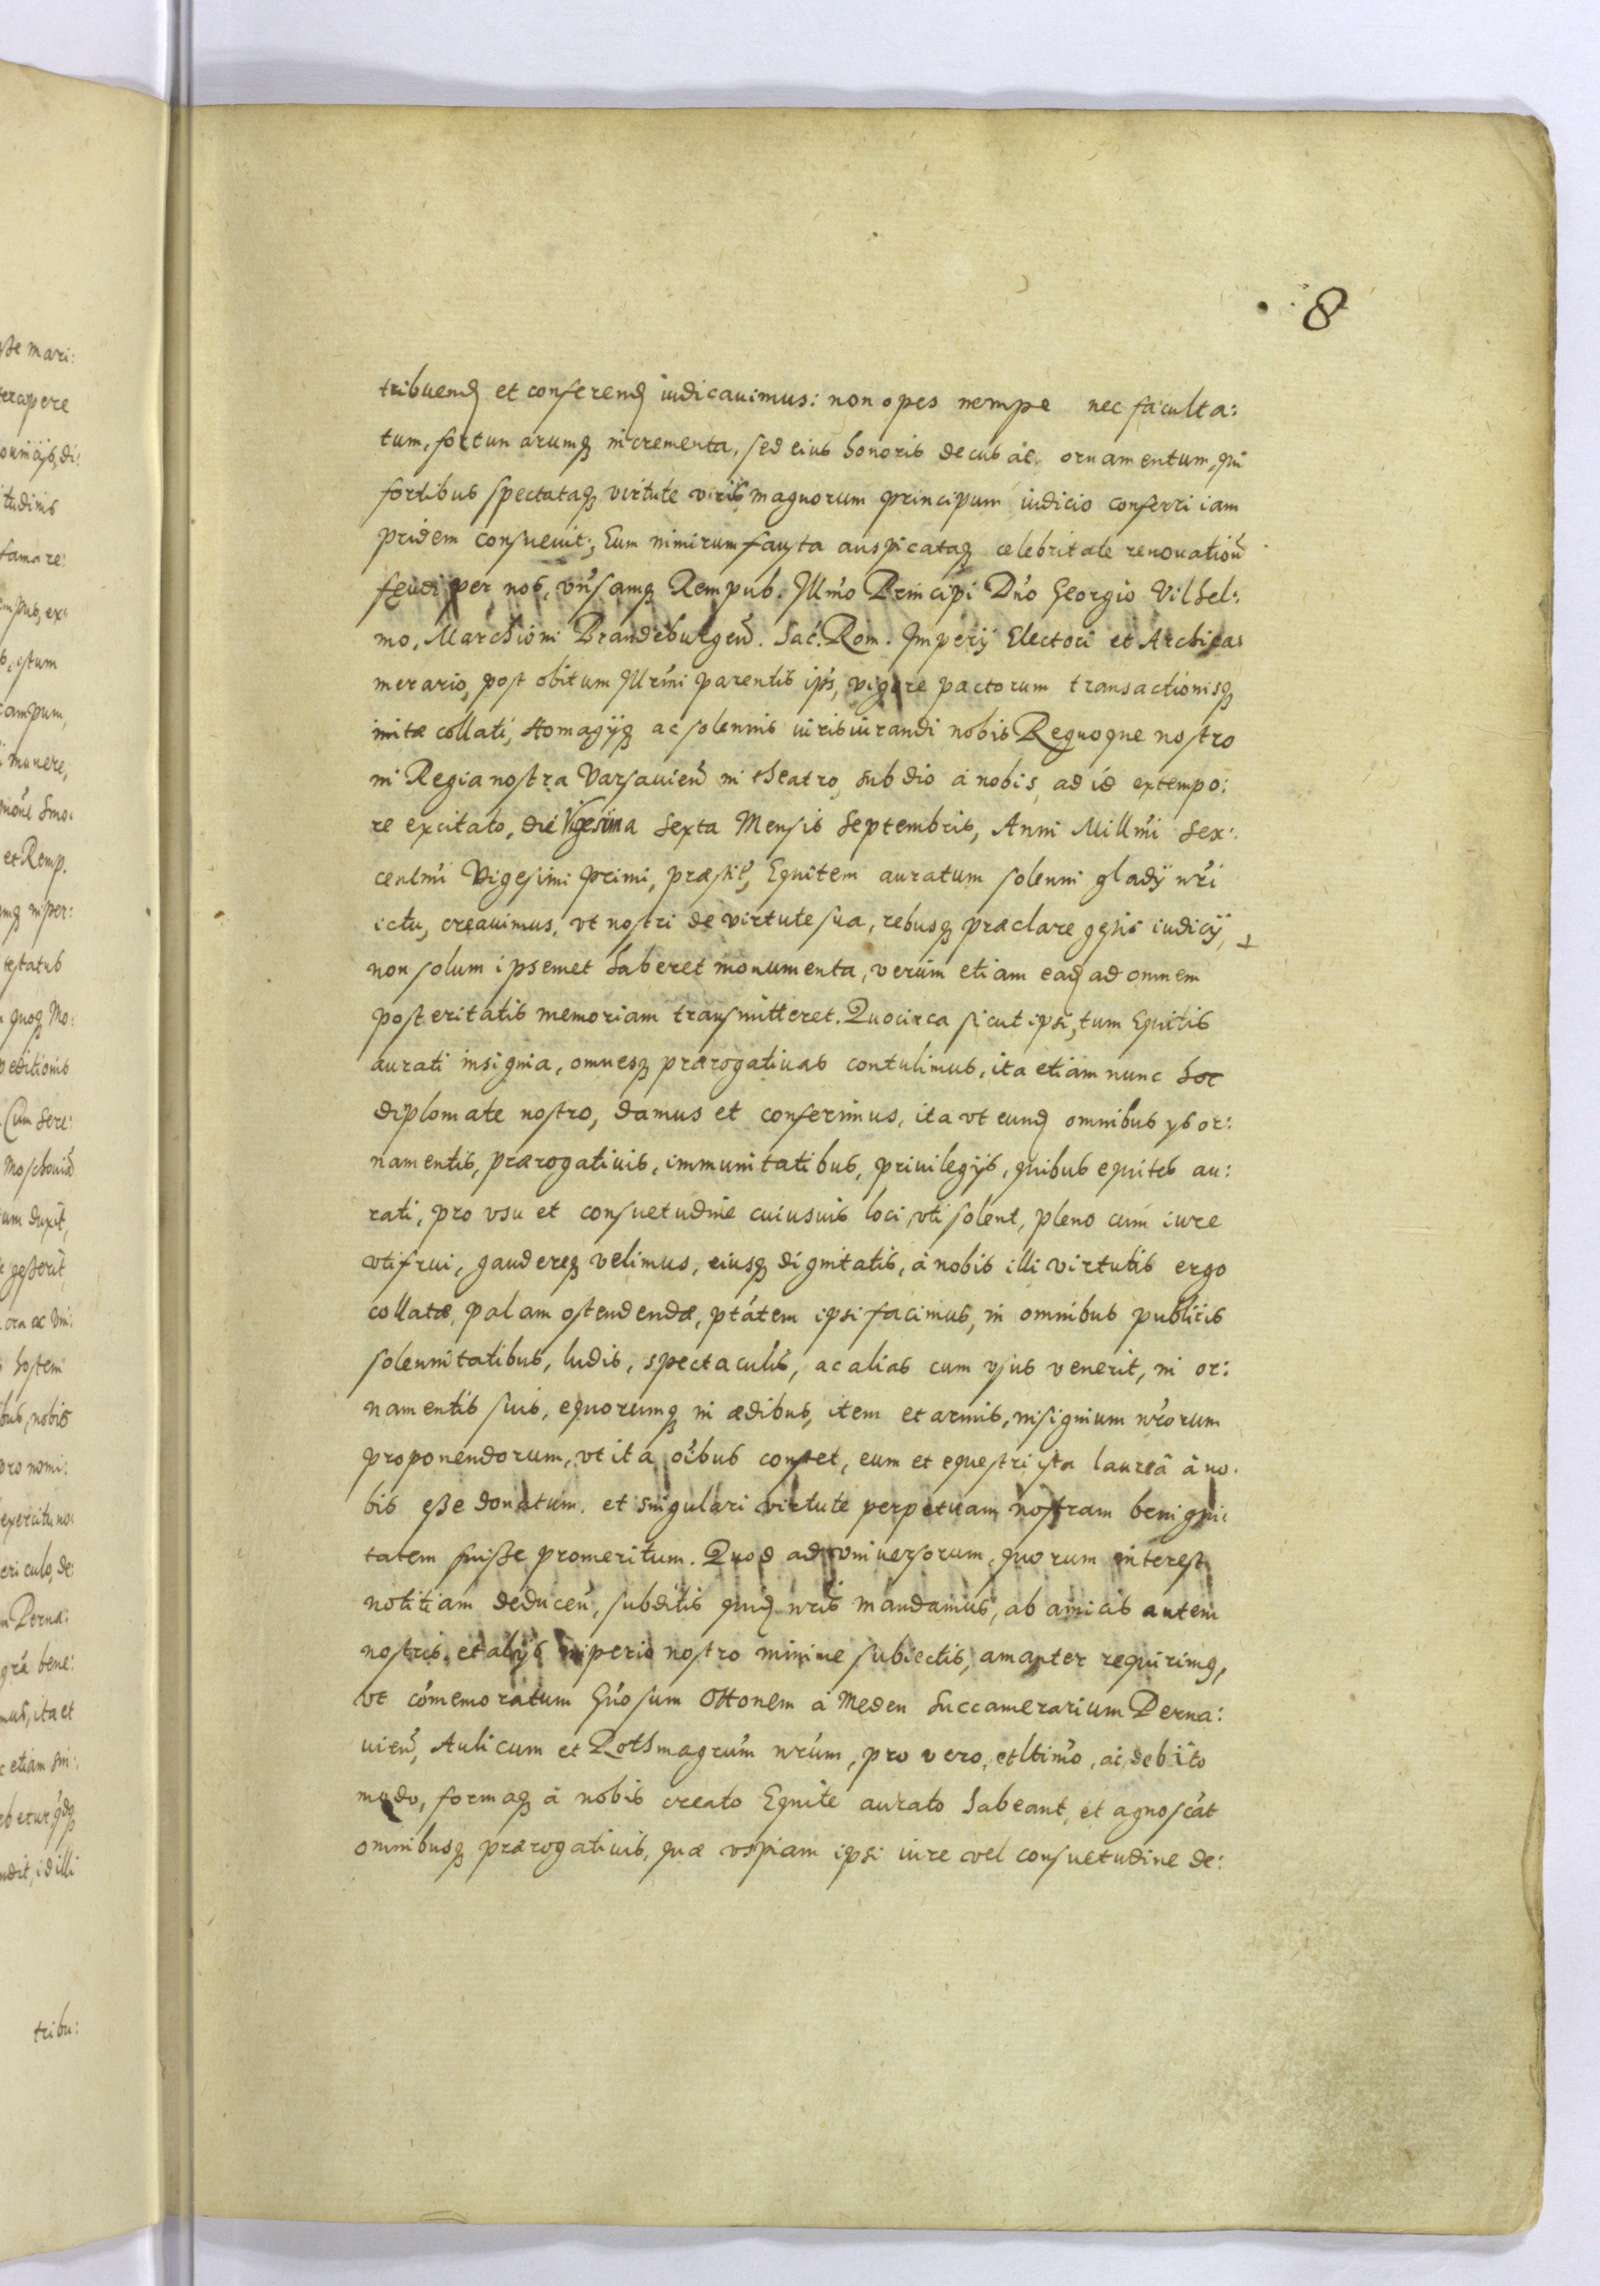 8
tribuend et conferend iudicauimus: non opes nempe nec faculta:
tum, fortunarumq incrementa, sed eius honoris decus ac ornamentum, qui
fortibus spectataq virtute viris magnorum principum iudicio conferri iam
pridem consueuit; Eum nimirum fausta auspicataq celebritate renouation
feudi per nos, vnsamq Rempub. Illmo Principi Dno Georgio Vilhel:
mo, Marchioni Brandeburgen. Sac. Rom. Imperij Electori et Archica:
merario, post obitum Illrmi parentis ips, vigore pactorum transactionisq
initæ collati, Homagijq ac solennis iurisiurandi nobis Regnoque nostro
in Regia nostra Varsauien in theatro, sub dio à nobis, ad id extempo:
re excitato, die Vigesima Sexta Mensis Septembris, Anni Millmi Sex:
centmi Vigesimi primi, præstit, Equitem auratum solenni gladij nri
ictu, creauimus, vt nostri de virtute sua, rebusq præclare gestis iudicij,
non solum ipsemet haberet monumenta, verùm etiam ead ad omnem
posteritatis memoriam transmitteret. Quocirca sicut ipsi, tum Equitis
aurati insignia, omnesq prærogatiuas contulimus, ita etiam nunc hoc
diplomate nostro, damus et conferimus, ita vt eund omnibus ys or:
namentis, prærogatiuis, immunitatibus, priuilegijs, quibus equites au:
rati, pro vsu et consuetudine cuiusuis loci vti solent, pleno cum iure
vti frui, gaudereq velimus, eiusq dignitatis, à nobis illi virtutis ergo
collatæ, palam ostendendæ, ptátem ipsi facimus, in omnibus publicis
solennitatibus, ludis, spectaculis, ac alias cum vsus venerit, in or:
namentis suis, equorumq in ædibus, item et armis, insignium nrorum
proponendorum, vt ita oibus constet, eum et equestri ista laureâ à no.
bis eße donatum, et singulari virtute perpetuam nostram benigni:
tatem fuiße promeritum. Quod ad vniuersorum, quorum interest
notitiam deducen, subditis quid nris mandamus, ab amicis autem
nostris, et alijs imperio nostro minime subiectis, amanter requirimq,
vt comemoratum Gnosum Ottonem à Meden Succamerarium Perna:
uien, Aulicum et Rothmagrum nrum, pro vero, et ltimo, ac debito
modo, formaq à nobis creato Equite aurato habeant, et agnoscat
omnibusq prærogatiuis, quæ vspiam ipsi iure vel consuetudine de:
tribu: